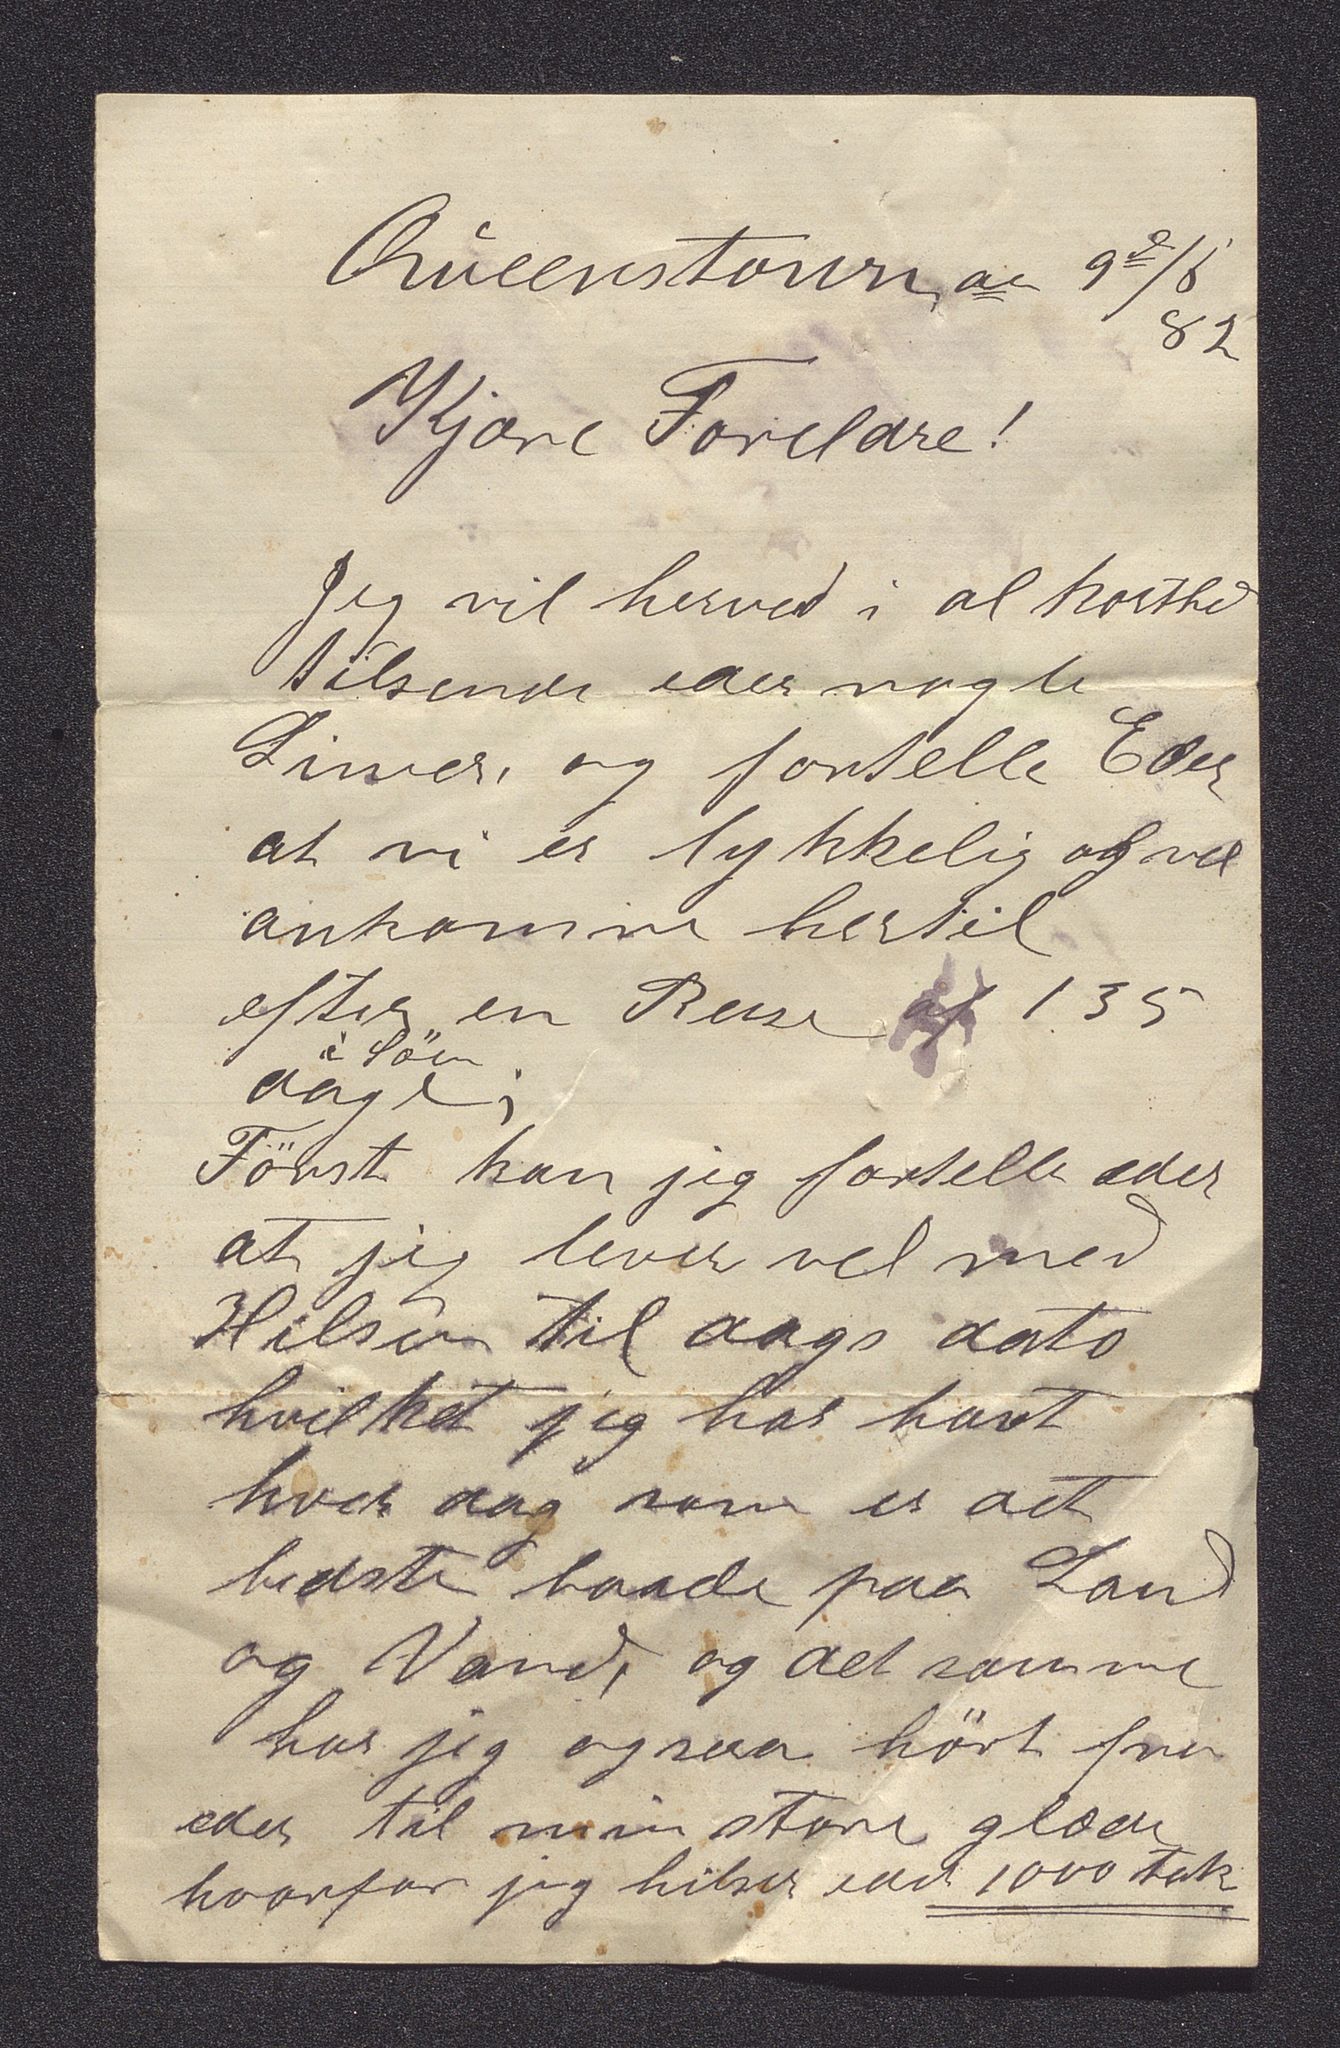 Queenstown de 9de/6
82
Kjære Foreldre!
Jeg vil herved i al korthed
tilsende eder nogle
Linier, og fortelle Eder
at vi er lykkelig og vel
ankomne hertil
efter en Reise af 135
i Söen
dage;
Först kan jeg fortelle eder
at jeg lever vel med
Hilsen til dags dato
hvilket jeg har havt
hver dag som er det
bedste baade paa Land
og Vand, og det samme
har jeg ogsaa hört fra
eder til min store glæde
hvorfor jeg hilser eder 1000 tak